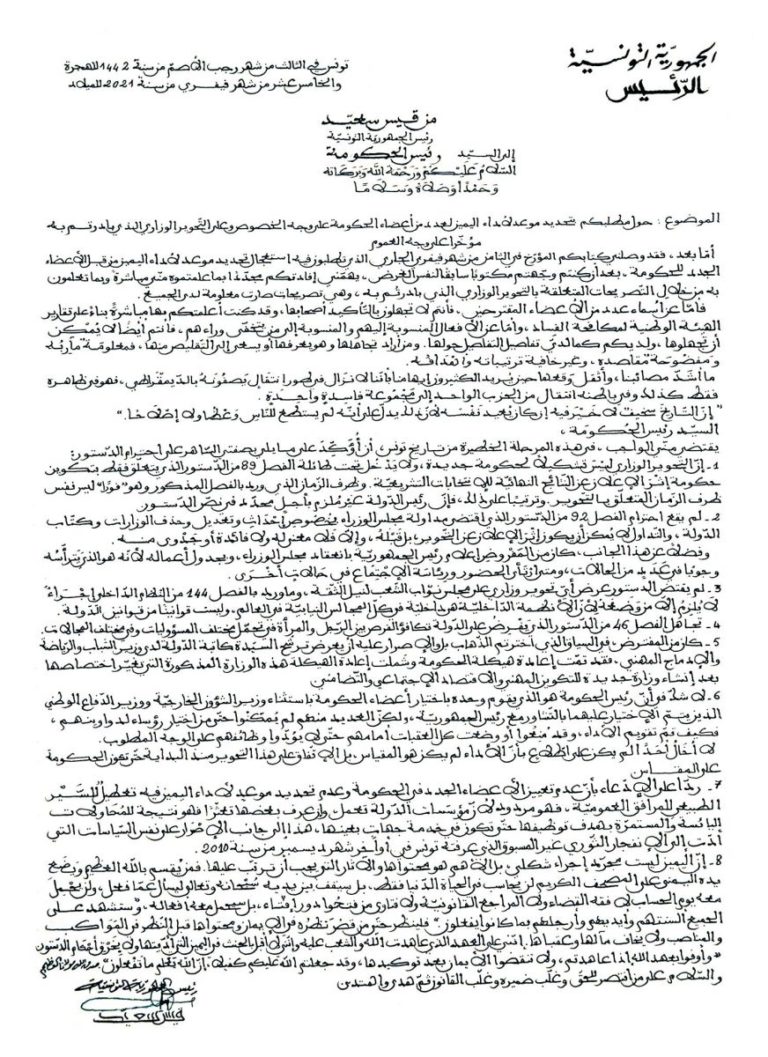 الجمهورية التونسية
الرئيس
تونس في الثالث من شهر رجب الأصم من سنة 1442 للهجرة
والخامس عشر من شهر فيفري من سنة 2021 للميلاد
من قيس سعيد
رئيس الجمهورية التونسية
إلى السيد رئيس الحكومة
السلام عليكم ورحمة الله وبركاته
وحمدا وصلاة وسلاما
الموضوع : حول مطلبكم تحديد موعد لأداء اليمين لعدد من أعضاء الحكومة على وجه الخصوص وعلى التحوير الوزاري الذي بادرتم به
مؤخرا على وجه العموم
أما بعد، فقد وصلني كتابكم المؤرخ في الثامن من شهر فيفري الجاري الذي تطلبون فيه استعجال تحديد موعد لأداء اليمين من قبل الأعضاء
الجدد للحكومة، بعد أن كنتم وجهتم مكتوبا سابقا لنفس الغرض، يهمني إفادتكم مجددا بما علمتموه مني مباشرة وبما تعلمون
به من خلال التصريحات المتعلقة بالتحوير الوزاري الذي بادرتم به، وهي تصريحات صارت معلومة لدى الجميع.
فأما عن أسماء عدد من الأعضاء المقترحين، فأنتم لا تجهلون بالتأكيد أصحابها، وقد كنت أعلمتكم بها مباشرة بناء على تقارير
الهيئة الوطنية لمكافحة الفساد، وأما عن الأفعال المنسوبة إليهم والمنسوبة إلى من يتخفى وراءهم، فأنتم أيضا لا يمكن
أن تجهلوها، ولديكم كما لدي تفاصيل التفاصيل حولها. ومن أراد تجاهلها وهو يعرفها أو يسعى إلى التقليص منها، فمعلومة مآربه
ومفضوحة مقاصده، وغير خافية ترتيباته وأهدافه.
ما أشد مصائبنا، وأثقل وقعها حين يريد الكثيرون إيهامنا بأننا لا نزال في طور انتقال يصفونه بالديمقراطي، فهو في ظاهره
فقط كذلك وفي باطنه انتقال من الحزب الواحد إلى مجموعة فاسدة واحدة.
"إن التاريخ سخيف لا خير فيه إن كان يعيد نفسه لأن ذلك يدل على أنه لم يستطع للناس وعظا ولا إصلاحا."
السيد رئيس الحكومة،
يقتضي مني الواجب، في هذه المرحلة الخطيرة من تاريخ تونس، أن أؤكد على ما يلي بصفتي الساهر على احترام الدستور:
1- إن التحوير الوزاري ليس تشكيلا لحكومة جديدة، ولا يدخل تحت طائلة الفصل 89 من الدستور الذي يتعلق فقط بتكوين
حكومة إثر الإعلان عن النتائج النهائية للانتخابات التشريعية. وظرف الزمان الذي ورد بالفصل المذكور وهو "فورا" ليس نفس
ظرف الزمان المتعلق بالتحوير. وترتيبا على ذلك، فإن رئيس الدولة غير ملزم بأجل محدد في نص الدستور
2- لم يقع احترام الفصل 92 من الدستور الذي اقتضى مداولة مجلس الوزراء بخصوص إحداث وتعديل وحذف الوزارات وكتاب
الدولة، والتداول لا يمكن أن يكون إثر الإعلان عن التحوير، بل قبله، وإلا فلا معنى له ولا فائدة أو جدوى منه.
وفضلا عن هذا الجانب، كان من المفروض إعلام رئيس الجمهورية بانعقاد مجلس الوزراء، وبجدول أعماله لأنه هو الذي يترأسه
وجوبا في عديد من الحالات، ومتى ارتأى الحضور ورئاسة الاجتماع في حالات أخرى.
3- لم يقتض الدستور عرض أي تحوير وزاري على مجلس نواب الشعب لنيل الثقة، وما ورد بالفصل 144 من النظام الداخلي إجراء
لا يلزم إلا من وضعه لأن الأنظمة الداخلية هي داخلية في كل المجالس النيابية في العالم، وليست قوانينا من قوانين الدولة.
4- تجاهل الفصل 46 من الدستور الذي يفرض على الدولة تكافؤ الفرص بين الرجل والمرأة في تحمل مختلف المسؤوليات وفي مختلف المجالات.
5- كان من المفترض في السياق الذي اخترتم الذهاب بل والإصرار عليه أن يعرض ترشح السيدة كاتبة الدولة لدى وزير الشباب والرياضة
والإدماج المهني، فقد تمت إعادة هيكلة الحكومة وشملت إعادة الهيكلة هذه الوزارة المذكورة التي تغير اختصاصها
بعد إنشاء وزارة جديدة للتكوين المهني والاقتصاد الاجتماعي والتضامني
6- لا شك في أن رئيس الحكومة هو الذي يقوم وحده باختيار أعضاء الحكومة باستثناء وزير الشؤون الخارجية ووزير الدفاع الوطني
الذين يتم الاختيار عليهما بالتشاور مع رئيس الجمهورية، ولكن العديد منهم لم يمكنوا حتى من اختيار رؤساء لدواوينهم،
فكيف تم تقويم الأداء، وقد منعوا أو وضعت كل العقبات أمامهم حتى لا يؤدوا وظائفهم على الوجه المطلوب.
لا أخال أحدا لم يكن على اطلاع بأن الأداء لم يكن هو المقياس بل الاتفاق على هذا التحوير منذ البداية حتى تكون الحكومة
على المقاس
7- ردا على الادعاء بأن عدم تعيين الأعضاء الجدد في الحكومة وعدم تحديد موعد لأداء اليمين فيه تعطيل للسير
الطبيعي للمرافق العمومية، فهو مردود لأن مؤسسات الدولة تعمل وإن عرف بعضها تعثرا فهو نتيجة للمحاولات
اليائسة والمستمرة بهدف توظيفها حتى تكون في خدمة جهات بعينها، هذا إلى جانب الإصرار على نفس السياسات التي
أدت إلى الانفجار الثوري غير المسبوق الذي عرفته تونس في أواخر شهر ديسمبر من سنة 2010.
8- إن اليمين ليست مجرد إجراء شكلي، بل الأهم هو محتواها والآثار التي يجب أن تترتب عليها. فمن يقسم بالله العظيم ويضع
يده اليمنى على المصحف الكريم لن يحاسب في الحياة الدنيا فقط، بل سيقف بين يديه سبحانه وتعالى ليسأل عما فعل، ولن يقبل
معه يوم الحساب لا فقه القضاء ولا المراجع القانونية ولا فتاوى من فتحوا دور إفتاء، بل سيحمل معه أفعاله، وستشهد على
الجميع ألسنتهم وأيديهم وأرجلهم بما كانوا يفعلون" فلينظر حتى من قصر نظره في الأيمان ومحتواها قبل النظر في المواكب
والمناصب ولا يخاف مآلها وعقباها. إنني على العهد الذي عاهدت الله والشعب عليه ولن أقبل الحنث في اليمين التي أديتها ولا يخرق أحكام الدستور
"وأوفوا بعهد الله إذا عاهدتم، ولا تنقضوا الأيمان بعد توكيدها، وقد جعلتم الله عليكم كفيلا. إن الله يعلم ما تفعلون"
والسلام على من انتصر للحق وغلب ضميره وغلب القانون ثم هدى واهتدى
رئيس الجمهورية التونسية
قيس سعيد